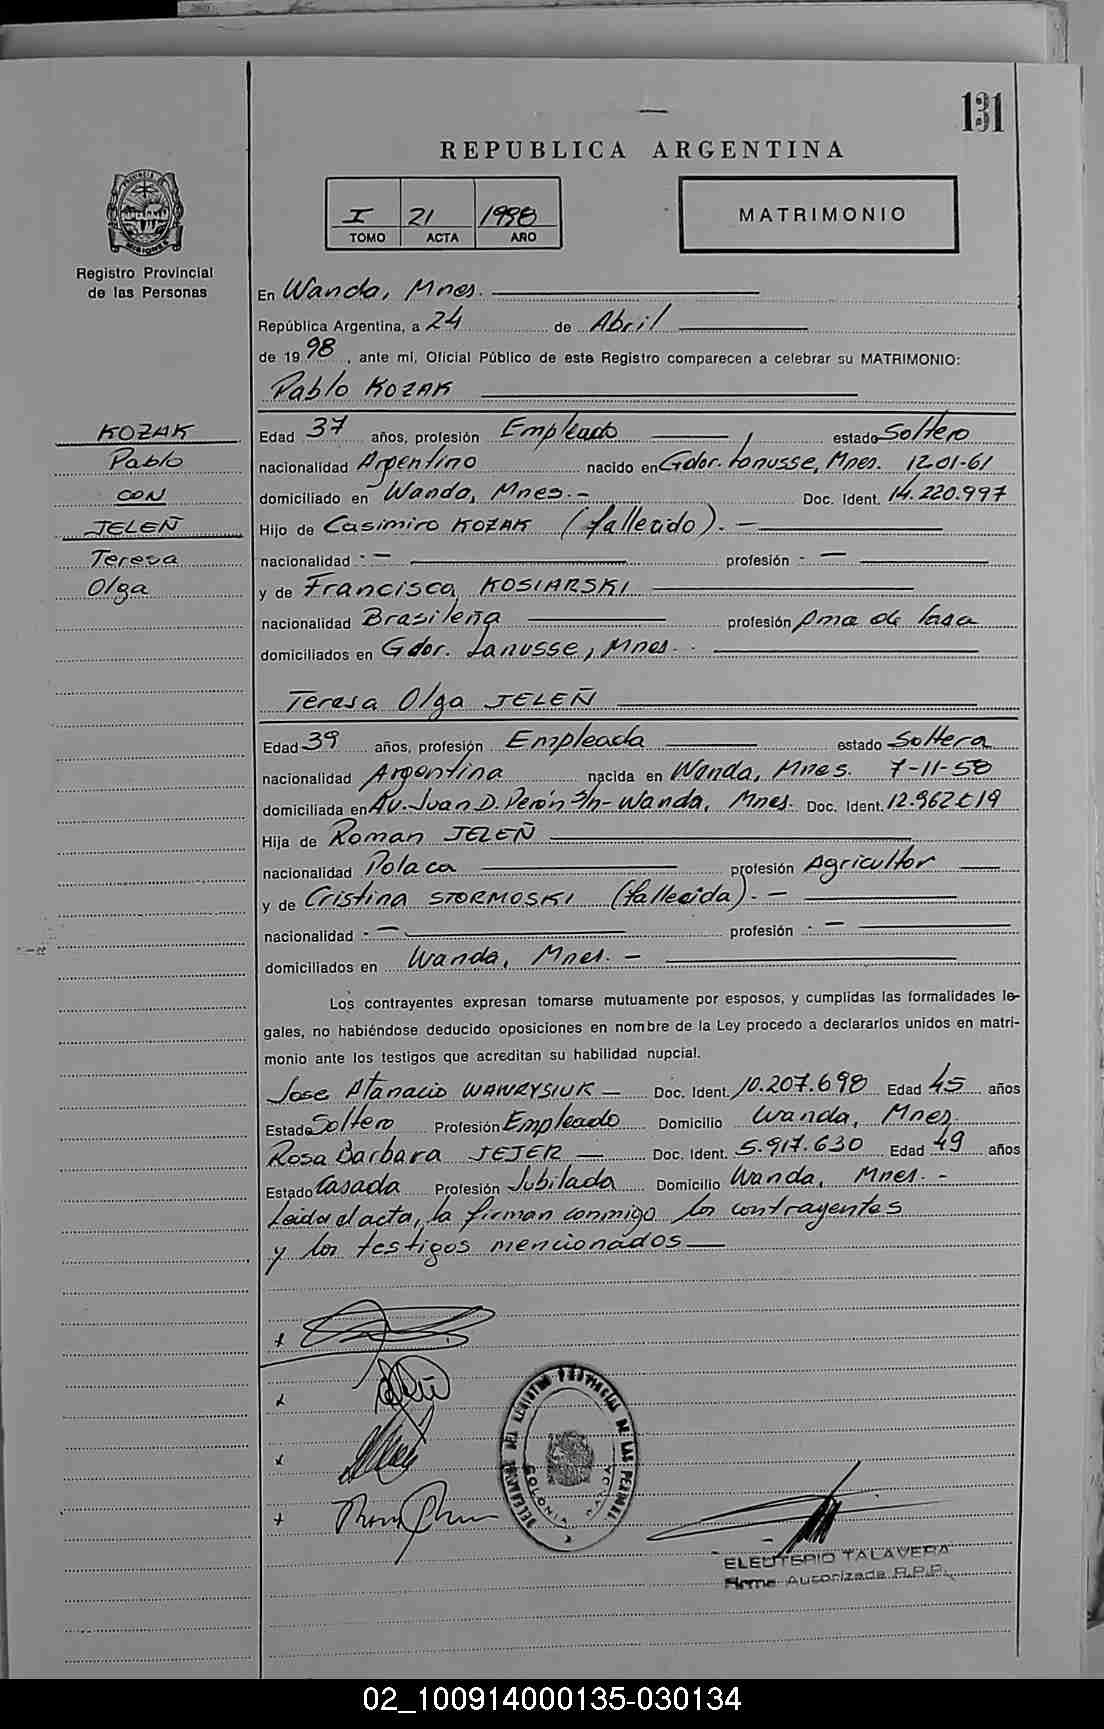 131
REPUBLICA ARGENTINA
I 21 1998
TOMO ACTA AÑO
MATRIMONIO
PROVINCIA DE MISIONES
Registro Provincial
de las Personas
En Wanda, Mnes.
República Argentina, a 24 de Abril
de 1998, ante mí, Oficial Público de este Registro comparecen a celebrar su MATRIMONIO:
Pablo KOZAK
KOZAK
Pablo
CON
JELEÑ
Teresa
Olga
Edad 37 años, profesión Empleado estado Soltero
nacionalidad Argentino nacido en Gdor. Lanusse, Mnes. 12-01-61
domiciliado en Wanda, Mnes.- Doc. Ident. 14.220.997
Hijo de Casimiro KOZAK (fallecido). -
nacionalidad - - profesión - -
y de Francisca KOSIARSKI
nacionalidad Brasileña profesión Ama de Casa
domiciliados en Gdor. Lanusse, Mnes.
Teresa Olga JELEÑ
Edad 39 años, profesión Empleada estado Soltera
nacionalidad Argentina nacida en Wanda, Mnes. 7-11-58
domiciliada en Av. Juan D. Perón S/n- Wanda, Mnes. Doc. Ident.
Hija de Roman JELEÑ
nacionalidad Polaca profesión Agricultor
y de Cristina STORMOSKI (fallecida). -
nacionalidad - - profesión - -
domiciliados en Wanda, Mnes. -
Los contrayentes expresan tomarse mutuamente por esposos, y cumplidas las formalidades le-
gales, no habiéndose deducido oposiciones en nombre de la Ley procedo a declararlos unidos en matri-
monio ante los testigos que acreditan su habilidad nupcial.
Jose Atanacio WAWRYSIUK - Doc. Ident. 10.207.698 Edad 45 años
Estado Soltero Profesión Empleado Domicilio Wanda, Mnes.
Rosa Barbara JEJER - Doc. Ident. 5.917.630 Edad 49 años
Estado Casada Profesión Jubilada Domicilio Wanda, Mnes. -
Leida el acta, la firman conmigo los contrayentes
y los testigos mencionados
DEL REGISTRO PROVINCIAL DE LAS PERSONAS
COLONIA WANDA
ELEUTERIO TALAVERA
Firma Autorizada R.P.P.
02_100914000135-030134